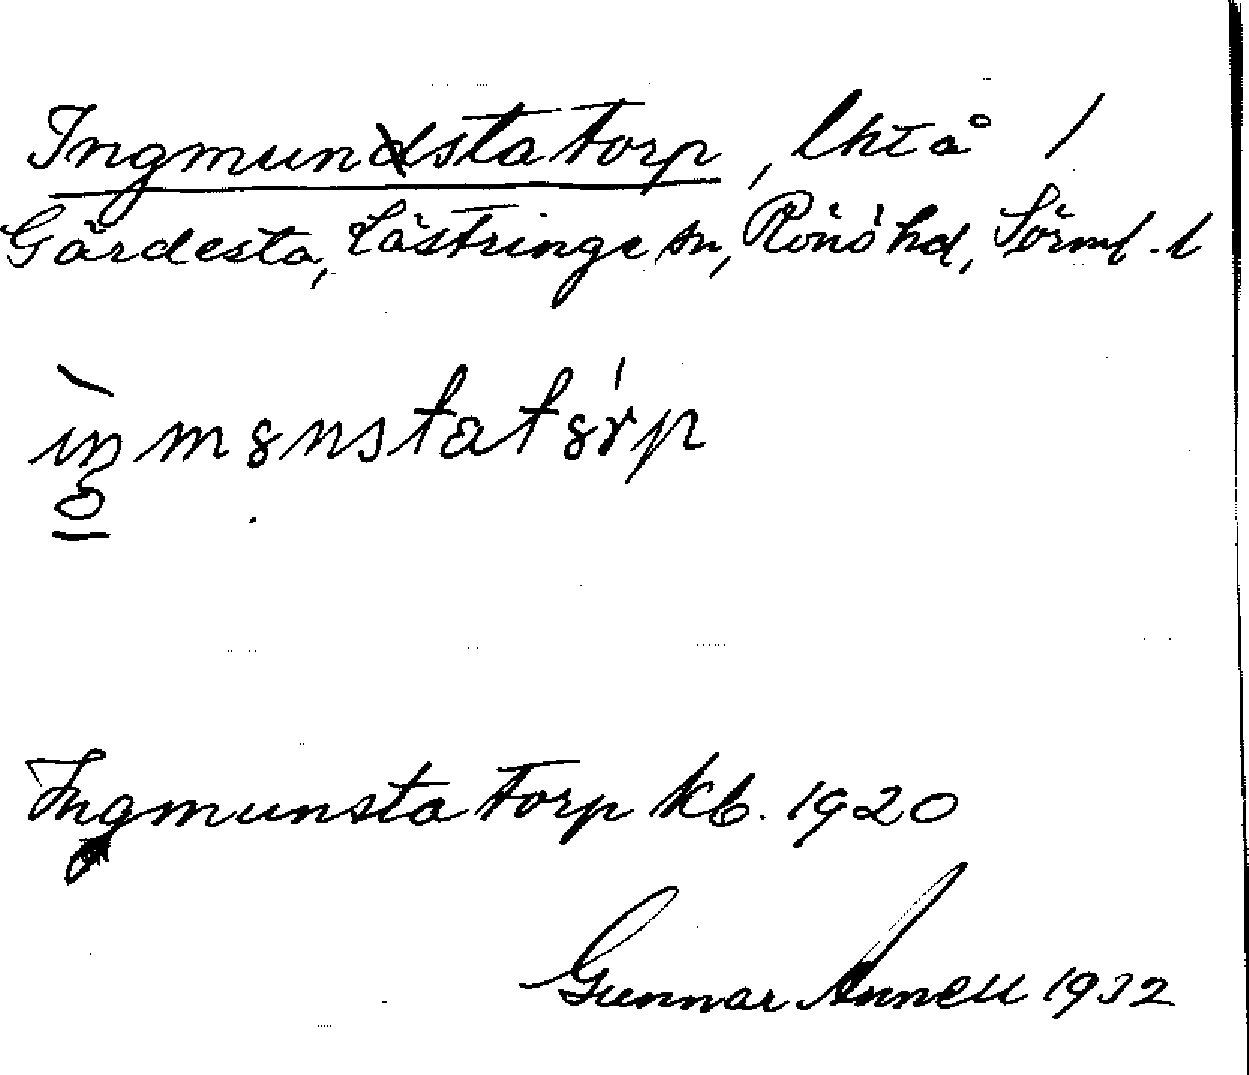 Ingmunstatorp, lht å /
Gärdesta, Lästringe sn, Rönö hd, Sörml. l
Ingmunsta torp kb. 1920
Gunnar Annell 1932